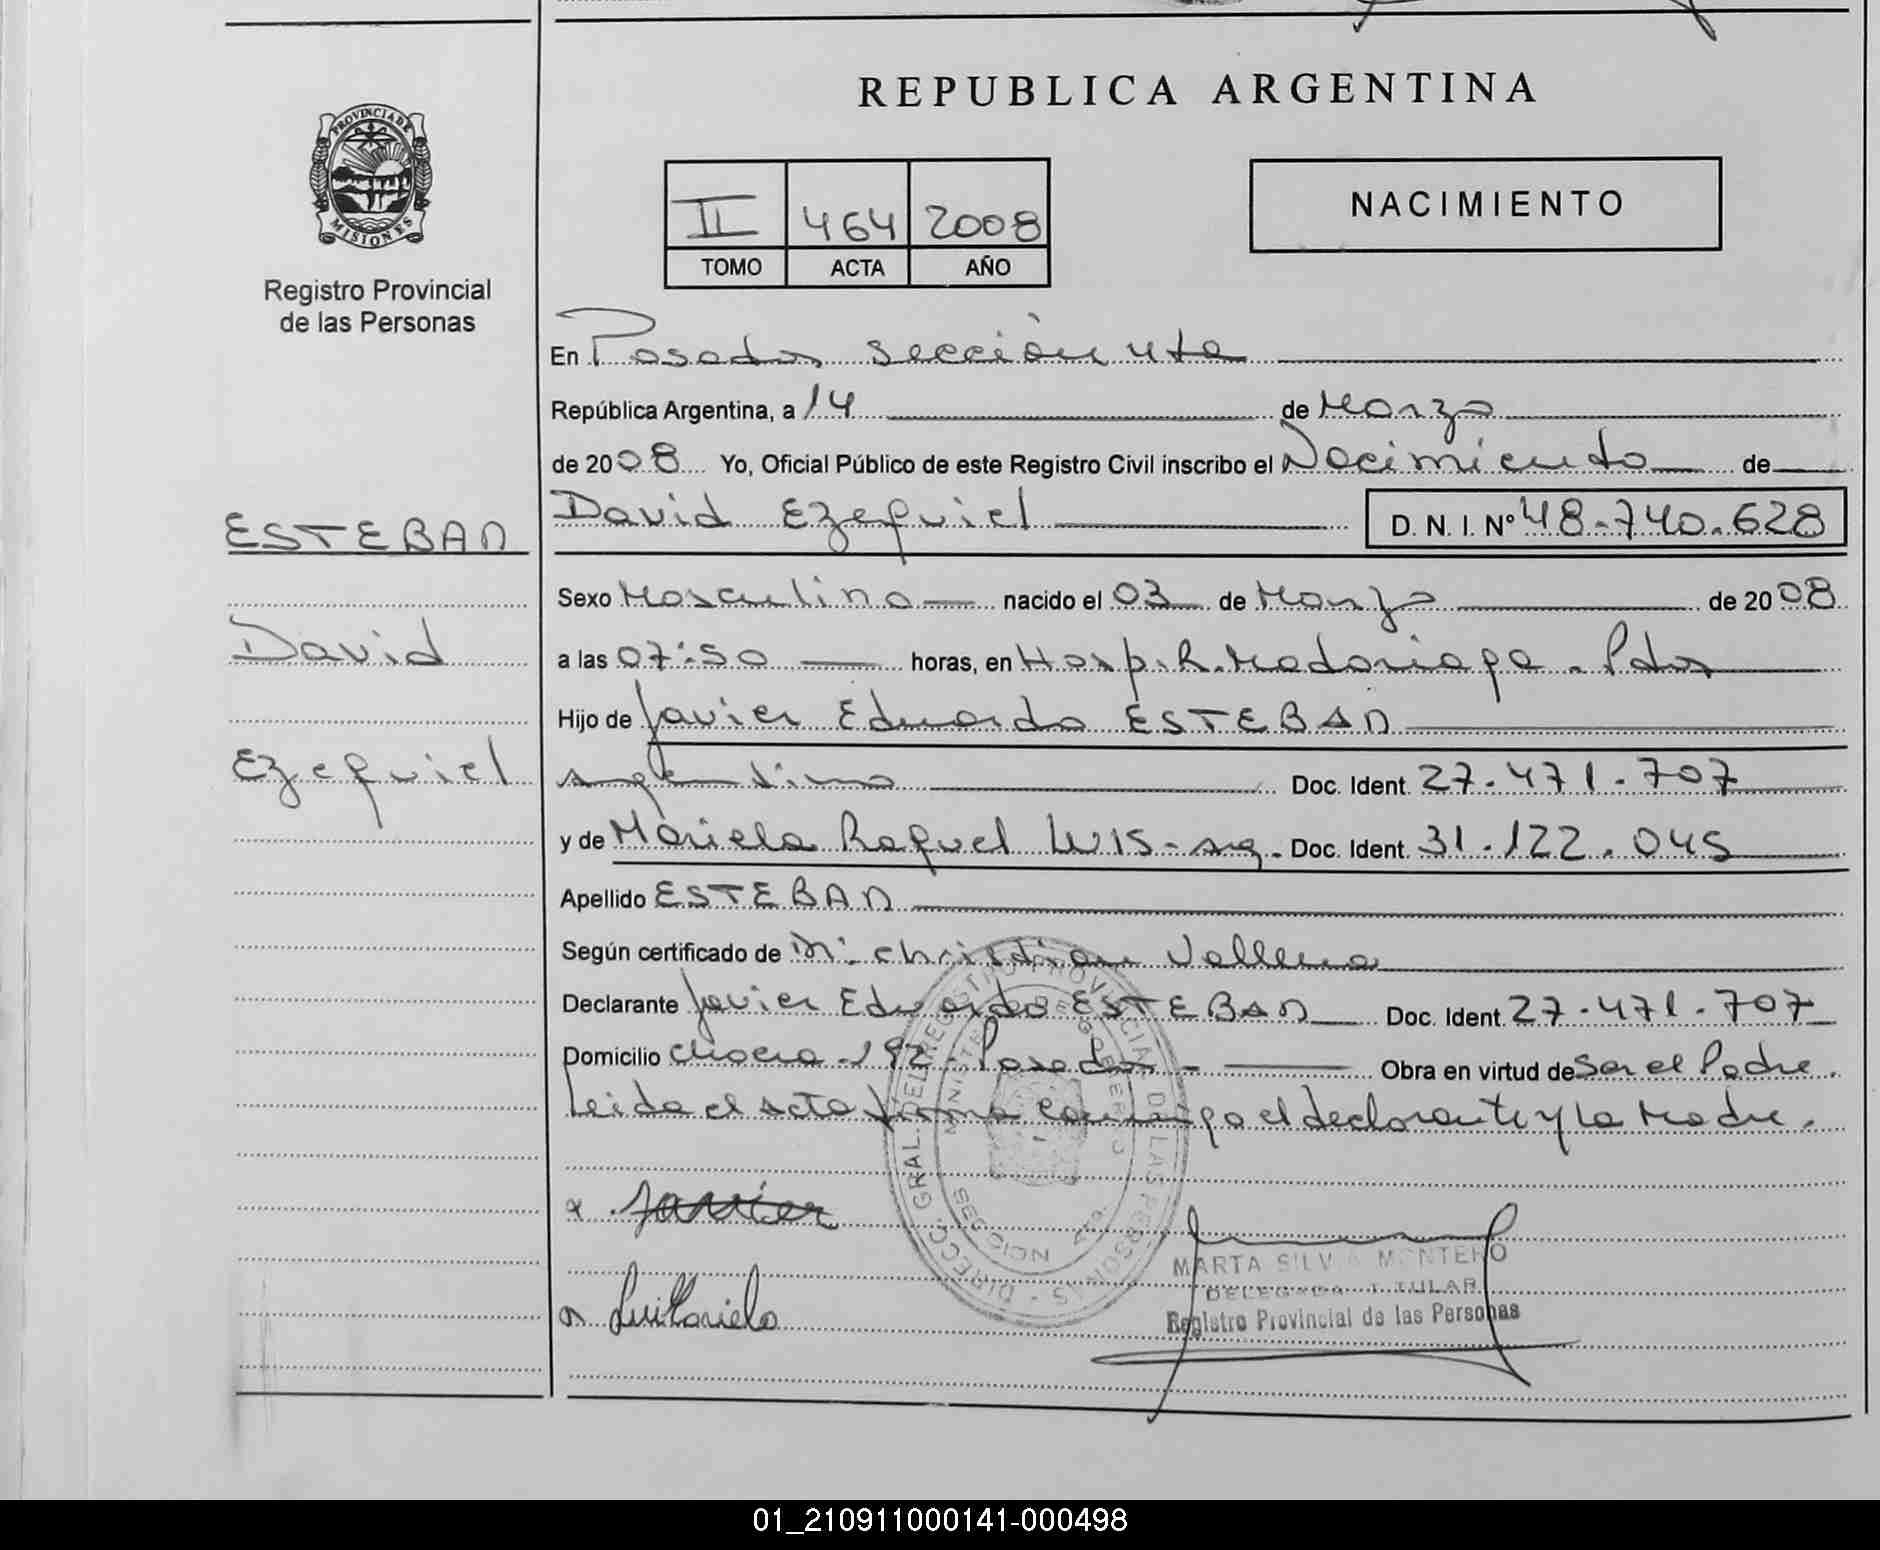 REPUBLICA ARGENTINA
PROVINCIA DE MISIONES
Registro Provincial
de las Personas
II 464 2008
TOMO ACTA AÑO
NACIMIENTO
En Posadas sección 4ta
República Argentina, a 14 de Marzo
de 2008 Yo, Oficial Público de este Registro Civil inscribo el Nacimiento de
David Ezequiel D. N. I. Nº 48.740.628
ESTEBAN
David
Ezequiel
Sexo Masculino nacido el 03 de Marzo de 2008
a las 07:50 horas, en Hosp. R. Madariaga. Pdas
Hijo de Javier Eduardo ESTEBAN
argentino Doc. Ident. 27.471.707
y de Mariela Raquel LUIS - arg. Doc. Ident. 31.122.045
Apellido ESTEBAN
Según certificado de Christian Vallena
Declarante Javier Eduardo ESTEBAN Doc. Ident. 27.471.707
Domicilio 192 Posadas - Obra en virtud de Ser el Padre.
Leida el acta firma conmigo el declarante y la Madre.
DIRECC. GRAL. DEL REGISTRO PROVINCIAL DE LAS PERSONAS
Javier
Luis Mariela
MARTA SILVIA MONTERO
DELEGADA TITULAR
Registro Provincial de las Personas
01_210911000141-000498